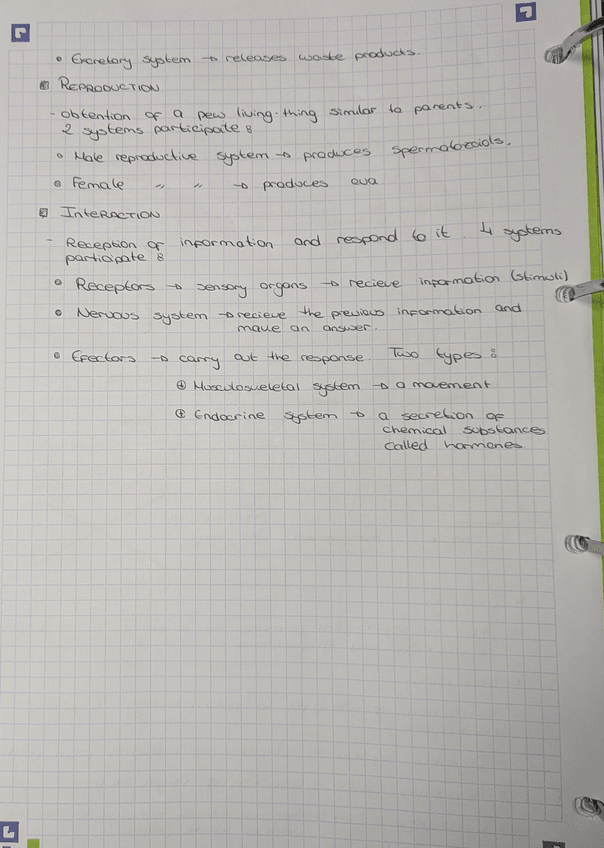 • Excretory system → releases waste products.
REPRODUCTION
- obtention of a new living-thing similar to parents.
2 systems participate:
• Male reproductive system → produces spermatozoids.
• Female " " → produces ova
INTERACTION
- Reception of information and respond to it. 4 systems
participate:
• Receptors → sensory organs → recieve information (stimuli)
• Nervous system → recieve the previous information and
make an answer.
• Efectors → carry out the response. Two types:
⊕ Musculoskeletal system → a movement
⊕ Endocrine system → a secretion of
chemical substances
called hormones